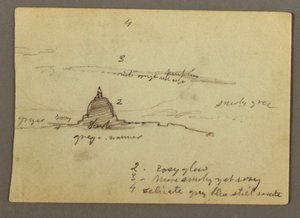 4
3
purple
2
smoky grey
greyer rosy
dark
grey - warmer
2 - rosy glow
3 - more smoky yet rosy
4 delicate grey blue still